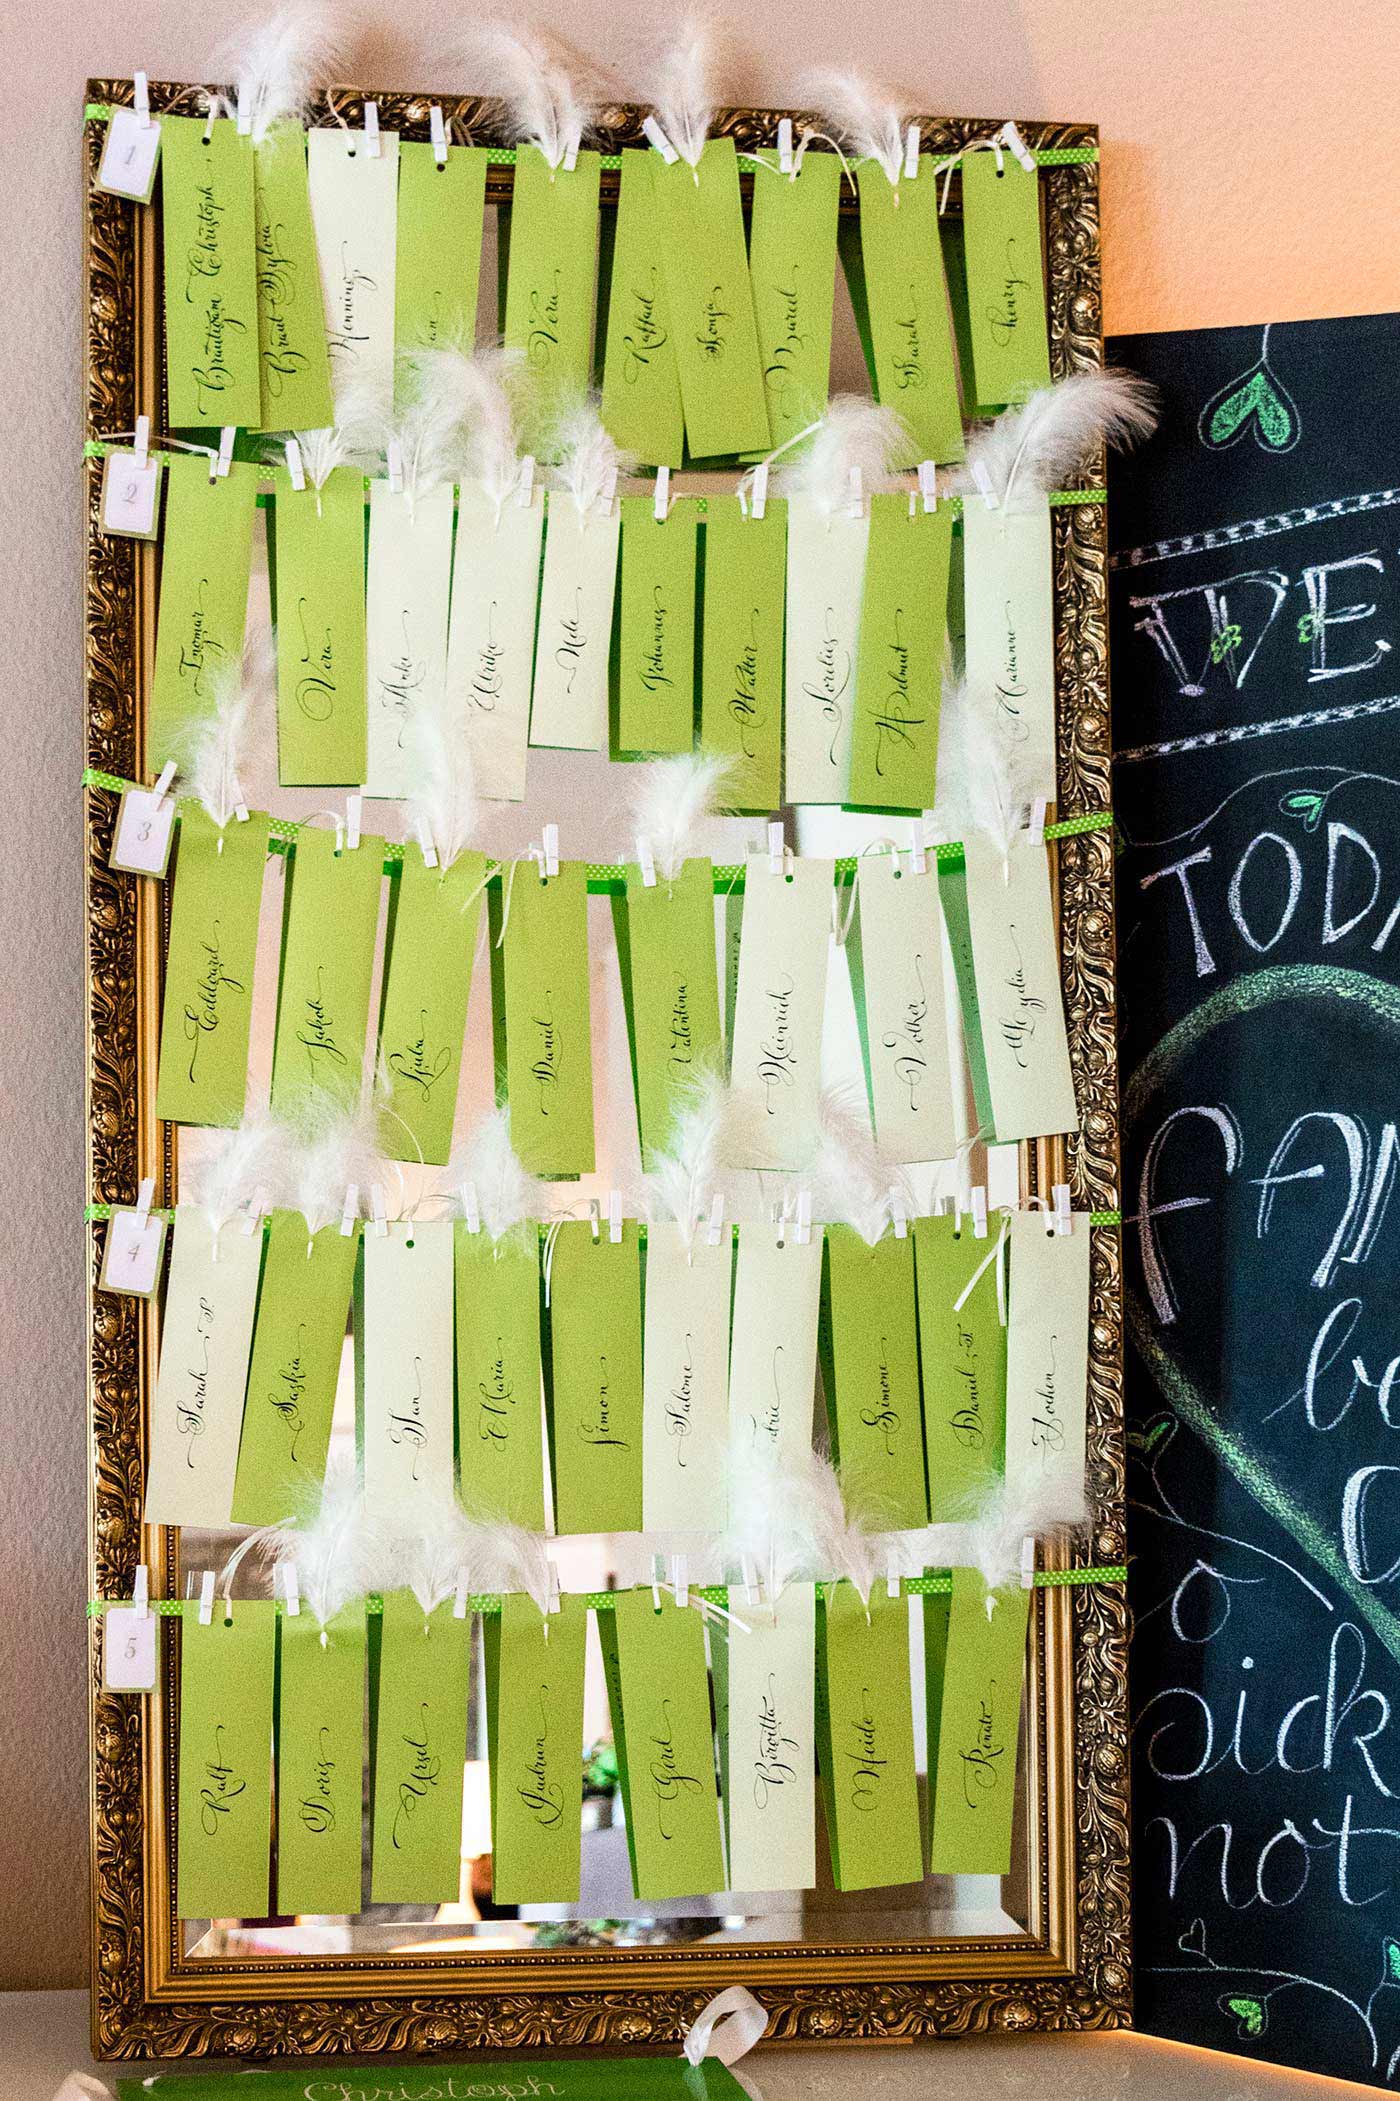 1
Bräutigam Christoph
Braut Sylvia
Henning
Vera
Raffael
Sonja
Sarah
henry
2
Ingmar
Vera
Anke
Ulrike
Nele
Johannes
Walter
Lorelies
Helmut
Marianne
3
Eddegard
Jakob
Ljuba
Daniel
Valentina
Heinrich
Volker
Lydia
4
Sarah S.
Saskia
Jan
Maria
Simon
Salome
Simone
Daniel T
Jochen
5
Ralf
Doris
Ursel
Gudrun
Gerd
Birgitta
Heide
Renate
Christoph
WE
TODA
FAM
be
Sick
not